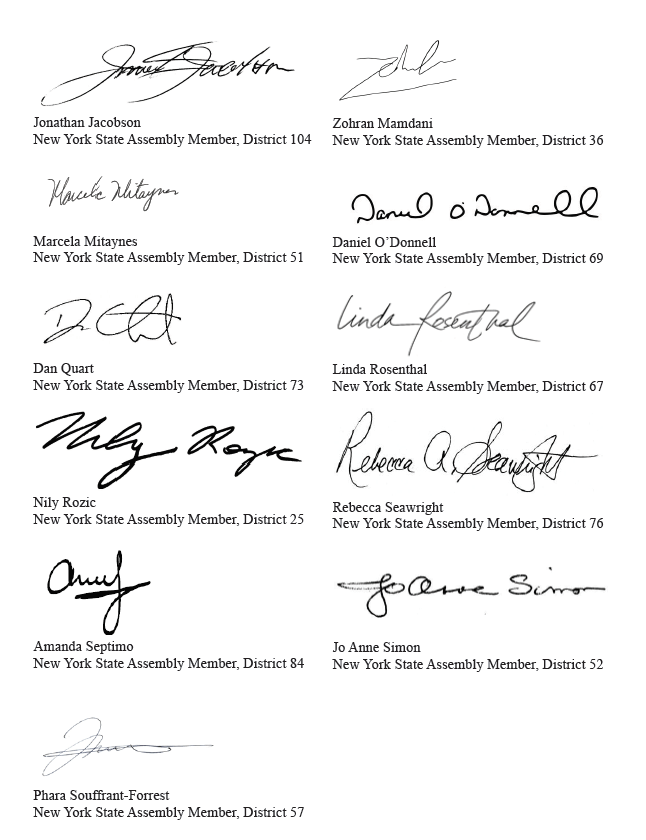 Jonathan Jacobson
New York State Assembly Member, District 104
Zohran Mamdani
New York State Assembly Member, District 36
Marcela Mitaynes
Marcela Mitaynes
New York State Assembly Member, District 51
Daniel O'Donnell
Daniel O’Donnell
New York State Assembly Member, District 69
Dan Quart
New York State Assembly Member, District 73
Linda Rosenthal
Linda Rosenthal
New York State Assembly Member, District 67
Nily Rozic
Nily Rozic
New York State Assembly Member, District 25
Rebecca A. Seawright
Rebecca Seawright
New York State Assembly Member, District 76
Amanda Septimo
New York State Assembly Member, District 84
Jo Anne Simon
Jo Anne Simon
New York State Assembly Member, District 52
Phara Souffrant-Forrest
New York State Assembly Member, District 57